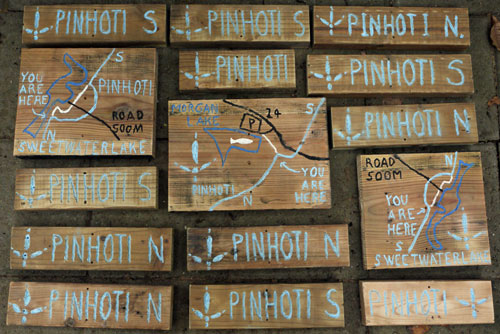 PINHOTI S
PINHOTI S
PINHOTI N.
YOU
ARE
HERE
PINHOTI
ROAD
500M
N
S
SWEETWATER LAKE
PINHOTI
PINHOTI S
MORGAN
LAKE
24
P
S
PINHOTI
N
YOU
ARE
HERE
PINHOTI N
PINHOTI S
ROAD
500M
N
YOU
ARE
HERE
S
SWEETWATER LAKE
PINHOTI N
PINHOTI N
PINHOTI N
PINHOTI S
PINHOTI